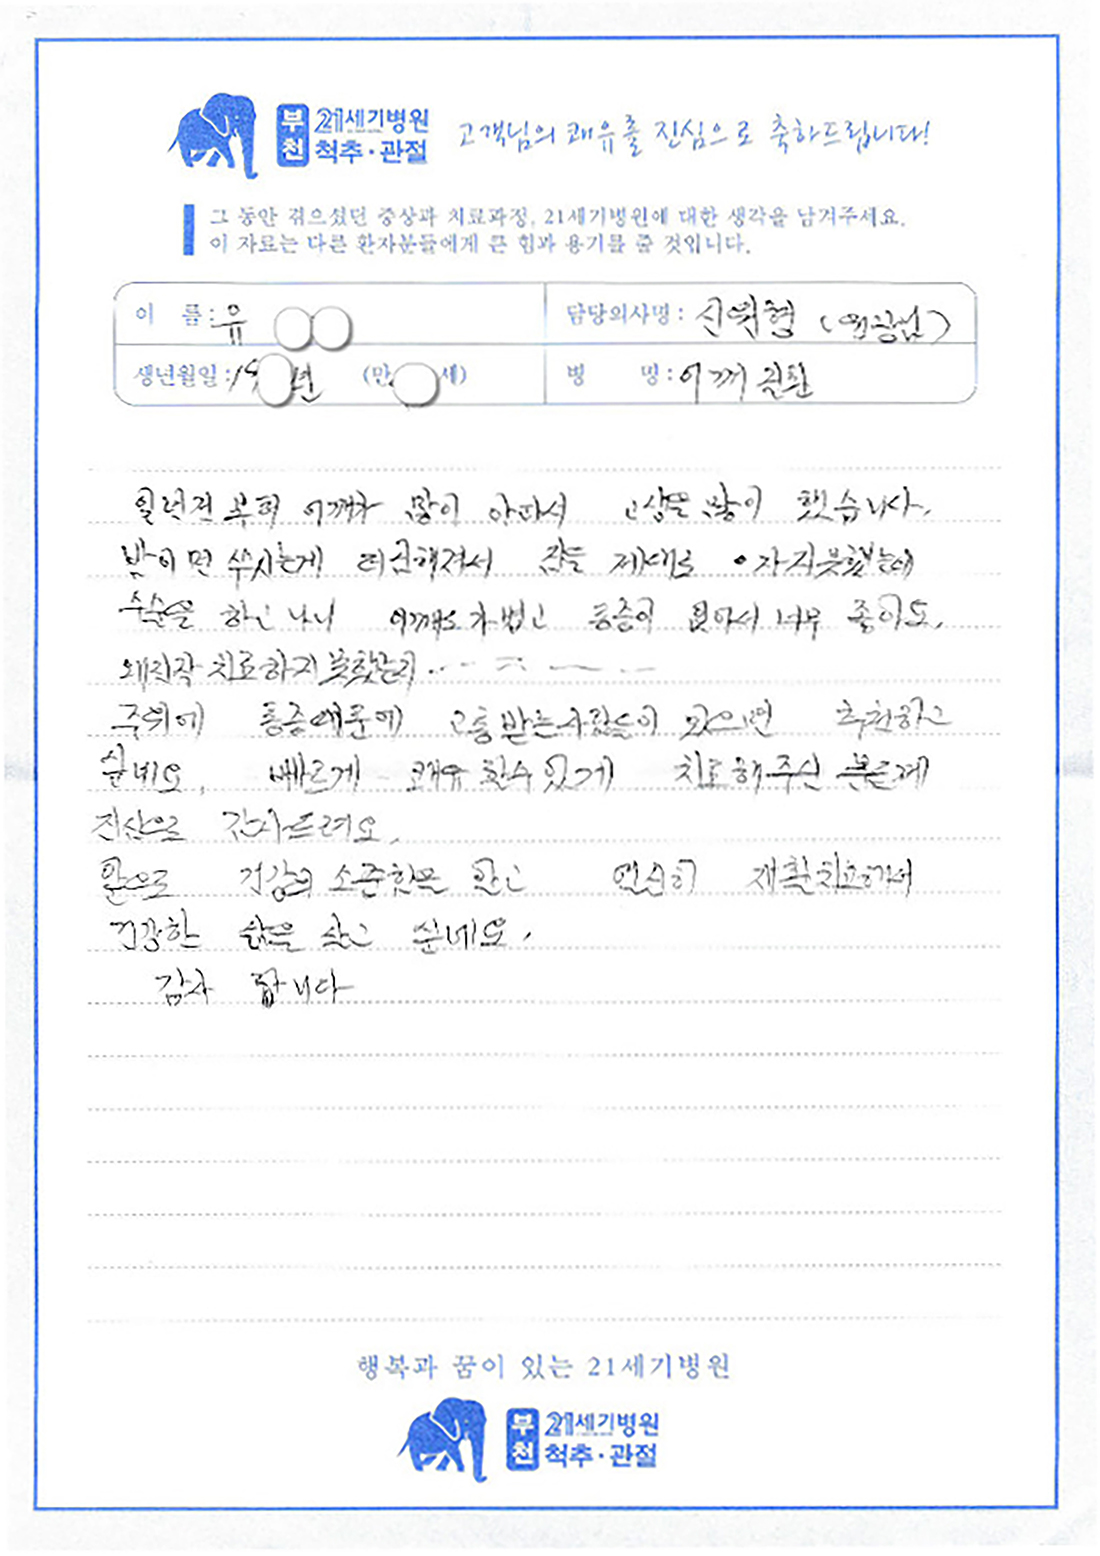 부천 21세기병원 척추·관절 고객님의 쾌유를 진심으로 축하드립니다!
그 동안 겪으셨던 증상과 치료과정, 21세기병원에 대한 생각을 남겨주세요.
이 자료는 다른 환자분들에게 큰 힘과 용기를 줄 것입니다.
이 름: 유 담당의사명: 신덕협 (원장님)
생년월일: 19 년 (만 세) 병 명: 어깨 질환
일년전 부터 어깨가 많이 아파서 고생을 많이 했습니다.
밤이면 쑤시는게 더심해져서 잠을 제대로 자지못했는데
수술을 하고나니 어깨도 가볍고 통증이 없어서 너무 좋아요.
왜진작 치료하지 못했는지
주위에 통증때문에 고통받는사람들이 있으면 추천하고
싶네요. 빠르게 쾌유할수있게 치료해주신 분들께
진심으로 감사드려요.
앞으로 건강의 소중함을 알고 열심히 재활치료해서
건강한 삶을 살고 싶네요.
감사 합니다
행복과 꿈이 있는 21세기병원
부천 21세기병원 척추·관절